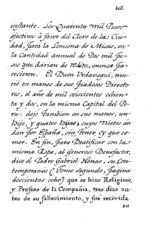 instante. Los Quarenta mil Pesos
efectivos à favor del Clero de la Ciu-
dad, para la Limosna de Misas, en
la Cantidad annual de Dos mil Pe-
sos que darian de Renta, nunca pa-
recieron. El Dum Urdanegui, mu-
rió en manos de sus Jurados Directo-
res, el año de mil seiscientos ochen-
ta y dos, en la misma Capital del Pe-
rú: dejo tambien en sus manos, un
hijo, y quatro hijas; cuyos Nietos an-
dan por España, sin tener, ni que co-
mer. En fin, para Beatificar con la
misma Espa, al Generoso Benefactor,
dice el Padre Gabriel Alonso, su Con-
temporaneo (Tomo segundo, pagina
doscientas ocho) que se hizo Religioso,
y Profeso de la Compañia, tres dias an-
tes de su fallecimiento, y fue recivida